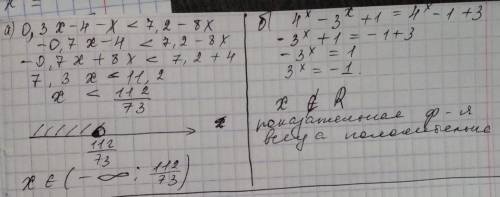 x =
а) 0,3x-4-x < 7,2-8x
-0,7x-4 < 7,2-8x
-0,7x+8x < 7,2+4
7,3x < 11,2
x < 112/73
x
112/73
x ∈ (-∞; 112/73)
б) 4^x - 3^x + 1 = 4^x - 1 + 3
-3^x + 1 = -1 + 3
-3^x = 1
3^x = -1
x ∉ R
показательная ф-я
всегда положительна